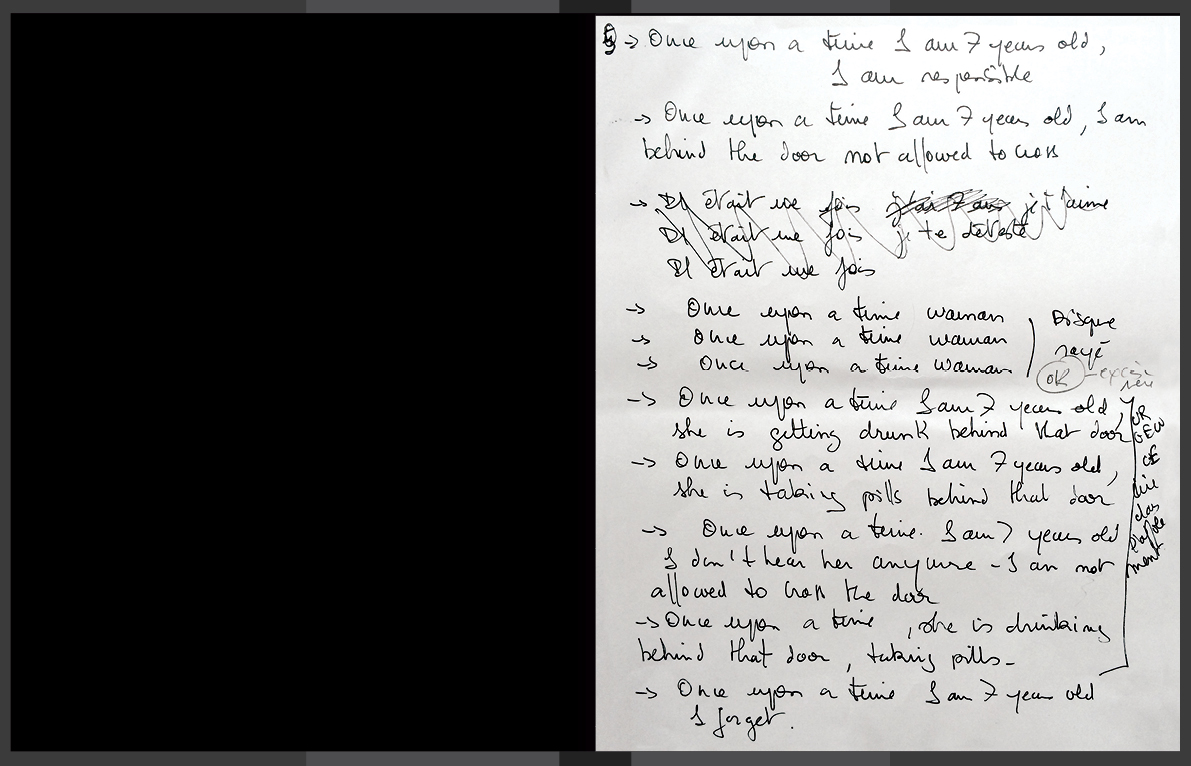 → Once upon a time I am 7 years old,
I am responsible
→ Once upon a time I am 7 years old, I am
behind the door not allowed to cross
→ Il était une fois j'ai 7 ans je t'aime
Il était une fois je te déteste
Il était une fois
→ Once upon a time woman
→ Once upon a time woman
→ Once upon a time woman
Disque
rayé
OK
→ Once upon a time I am 7 years old,
she is getting drunk behind that door
→ Once upon a time I am 7 years old,
she is taking pills behind that door
→ Once upon a time. I am 7 years old
I don't hear her anymore - I am not
allowed to cross the door
→ Once upon a time, she is drinking
behind that door, taking pills -
→ Once upon a time I am 7 year old
I forget.